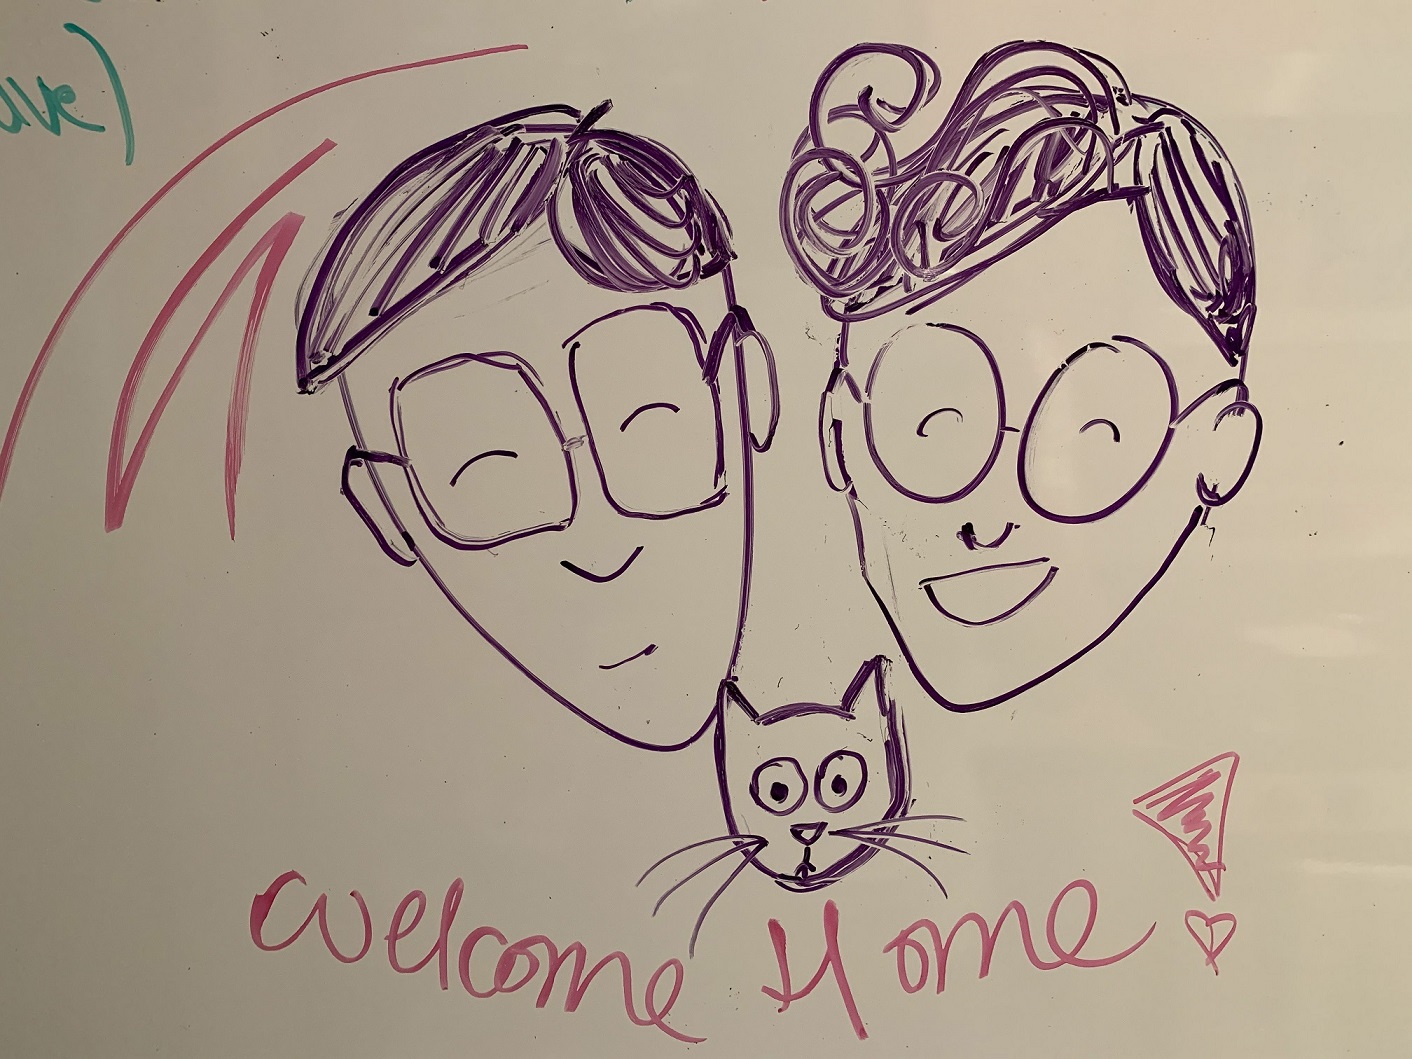 welcome Home!